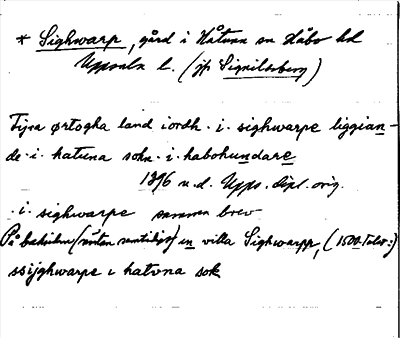 * Sighwarp, gård i Håtuna sn Håbo hd
Uppsala l. (jfr Signildsberg)
Fyra ørtogha land iordh · i · sighwarpe liggian-
de · i · hatuna sokn · i · habohundare
1396 u. d. Upps. dipl. orig.
· i · sighwarpe samma brev
På baksidan (nästan samtidigt) en villa Sighwarpp, (1500-talet:)
ssijghwarpe i hatvna sok